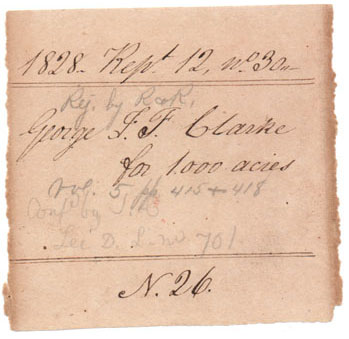 1828. Rept. 12, No. 30.
Rej. by R & R,
George J. F. Clarke
for 1.000 acres
vol. 5 pp 415 + 418
Conf'd by
See D. L. No 701.
N. 26.